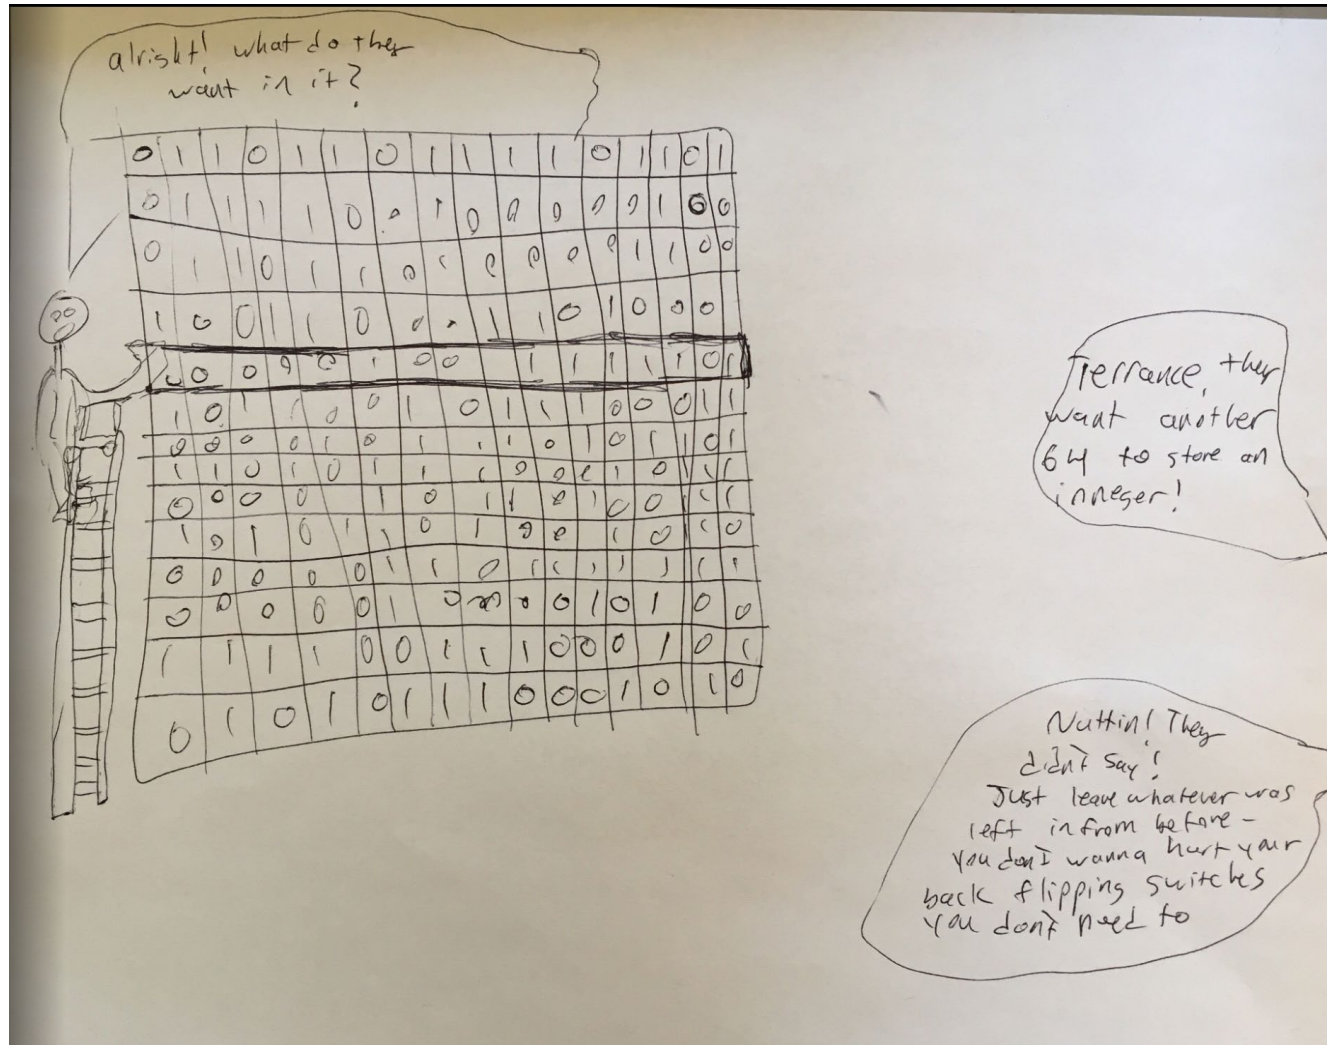 alright! what do they
want in it?
0 1 1 0 1 1 0 1 1 1 1 0 1 1 0 1
0 1 1 1 1 0 0 1 0 0 0 0 0 1 0 0
0 1 1 0 1 1 0 1 0 0 0 0 1 1 0 0
1 0 0 1 1 0 0 1 1 0 1 0 0 0
0 0 0 0 1 0 0 1 1 1 1 1 0 1
1 0 1 1 0 0 1 0 1 1 1 0 0 0 1 1
0 0 0 0 1 0 1 1 1 0 1 0 1 1 0 1
1 1 0 1 0 1 1 1 0 0 1 0 1 1
0 0 0 0 1 0 1 1 0 1 0 0 1 1
1 0 1 0 1 1 0 1 0 0 1 0 1 0
0 0 0 0 0 1 1 0 1 1 1 1 1 1 1
0 0 0 0 0 1 0 0 0 1 0 1 0 0
1 1 1 1 0 0 1 1 1 0 0 0 1 0 1
0 1 0 1 0 1 1 1 0 0 0 1 0 1 0
Terrance, they
want another
64 to store an
inneger!
Nuttin! They
didn't say!
Just leave whatever was
left in from before -
you don't wanna hurt your
back flipping switches
you don't need to